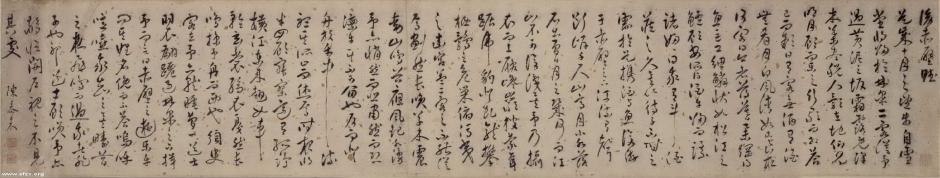 後赤壁賦
是歲十月之望步自雪
堂將歸於臨皋二客從予
過黃泥之坂霜露既降
木葉盡脫人影在地仰見
明月顧而樂之行歌相答
已而歎曰有客無酒有酒
無肴月白風清如此良
夜何客曰今者薄暮舉網得
魚巨口細鱗狀如松江之
鱸顧安所得酒乎歸而謀
諸婦婦曰我有斗酒
藏之久矣以待子不時之
需於是攜酒與魚復遊
於赤壁之下江流有聲
斷岸千尺山高月小水落
石出曾日月之幾何而江
山不可復識矣予乃攝
衣而上履巉巖披蒙茸
踞虎豹登虯龍攀
棲鶻之危巢俯馮夷
之幽宮蓋二客不能從
焉劃然長嘯草木震
動山鳴谷應風起水湧
予亦悄然而悲肅然而恐
凜乎其不可留也反而登
舟放乎中流
聽其所止而休焉時夜將
半四顧寂寥適有孤鶴
橫江東來翅如車
輪玄裳縞衣戛然長
鳴掠予舟而西也須臾
客去予亦就睡夢一道士
羽衣蹁躚過臨皋之下揖
予而言曰赤壁之遊樂乎
問其姓名俯而不答嗚呼
噫嘻我知之矣疇昔
之夜飛鳴而過我者非
子也邪道士顧笑予亦
驚寤開戶視之不見
其處
www.sfzx.org